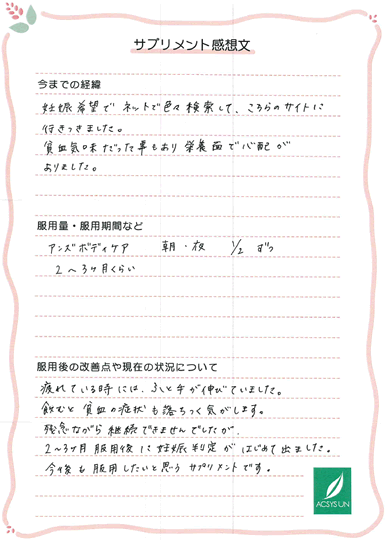 サプリメント感想文
今までの経緯
妊娠希望でネットで色々検索して、こちらのサイトに
行きつきました。
貧血気味だった事もあり栄養面で心配が
ありました。
服用量・服用期間など
アンズボディケア 朝・夜 1/2 ずつ
2〜3ヶ月くらい
服用後の改善点や現在の状況について
疲れている時には、ふと手が伸びていました。
飲むと貧血の症状も落ちつく気がします。
残念ながら継続できませんでしたが、
2〜3ヶ月服用後に妊娠判定がはじめて出ました。
今後も服用したいと思うサプリメントです。
ACSYSUN